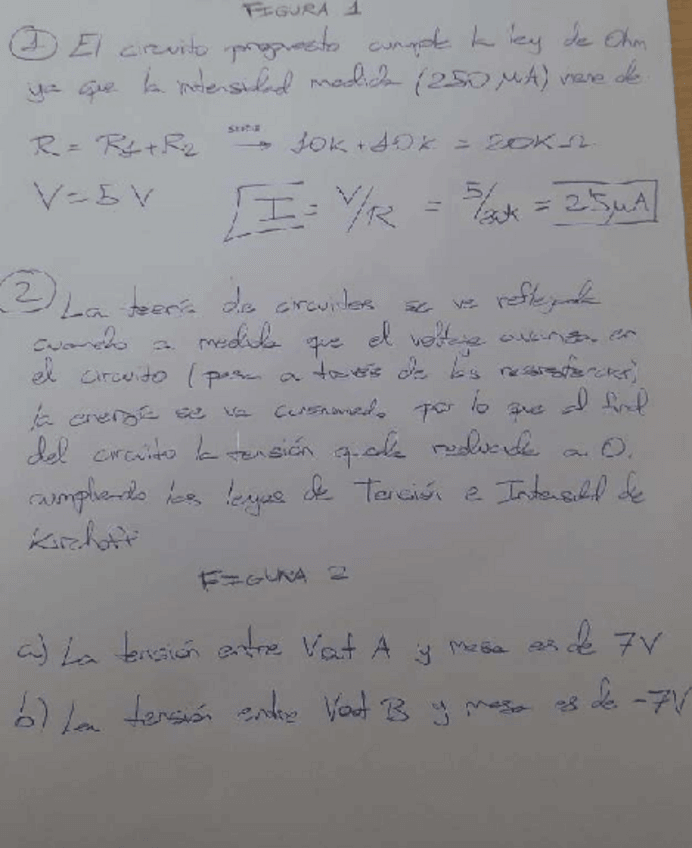 FIGURA 1
① El circuito propuesto cumple la ley de Ohm
ya que la intensidad medida (250 μA) viene de
R = R1+R2 serie → 10K + 10K = 20KΩ
V = 5 V I = V/R = 5/20k = 25μA
② La teoría de circuitos se ve reflejada
cuando a medida que el voltaje avanza en
el circuito (pasa a través de las resistencias)
la energía se va consumiendo por lo que al final
del circuito la tensión queda reducida a 0.
cumpliendo las leyes de Tensión e Intensidad de
Kirchoff
FIGURA 2
a) La tensión entre Vout A y masa es de 7V
b) La tensión entre Vout B y masa es de -7V